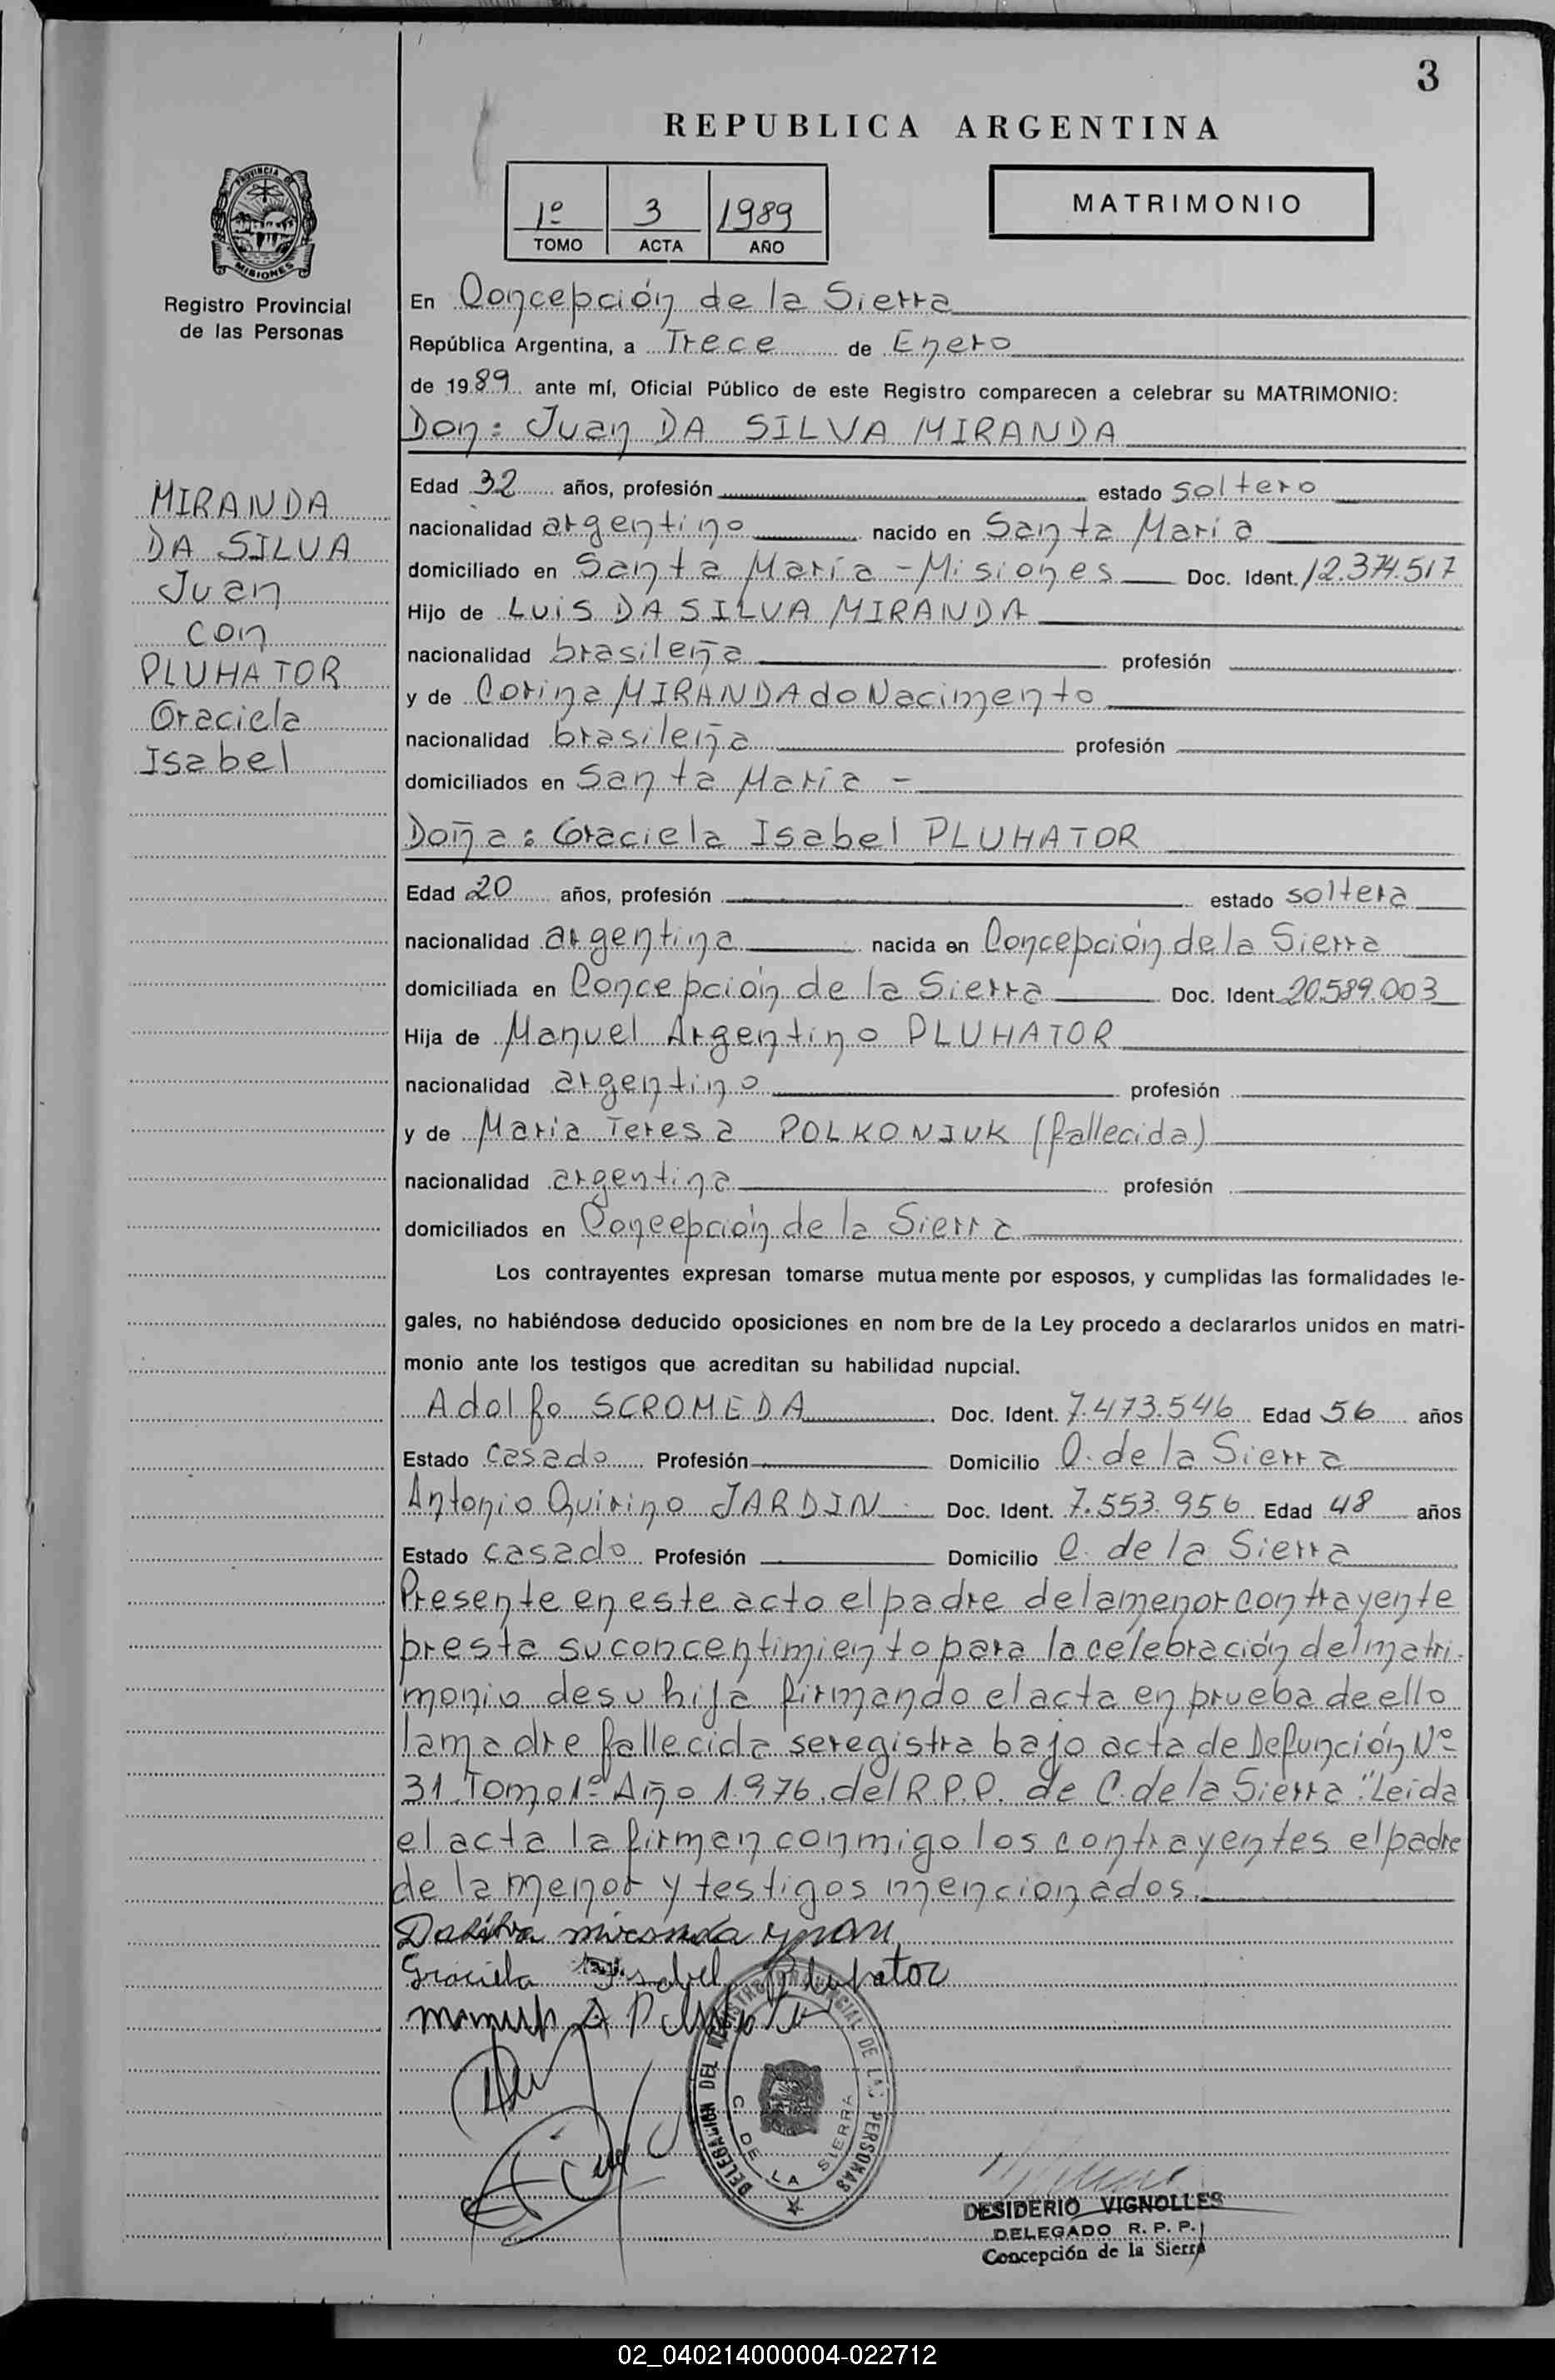 3
REPUBLICA ARGENTINA
1º 3 1989
TOMO ACTA AÑO
MATRIMONIO
PROVINCIA DE
MISIONES
Registro Provincial
de las Personas
MIRANDA
DA SILVA
Juan
con
PLUHATOR
Graciela
Isabel
En Concepción de la Sierra
República Argentina, a Trece de Enero
de 1989 ante mí, Oficial Público de este Registro comparecen a celebrar su MATRIMONIO:
Don: Juan DA SILVA MIRANDA
Edad 32 años, profesión estado soltero
nacionalidad argentino nacido en Santa María
domiciliado en Santa María - Misiones Doc. Ident. 12.374.517
Hijo de LUIS DA SILVA MIRANDA
nacionalidad brasileña profesión
y de Corina MIRANDA do Nacimento
nacionalidad brasileña profesión
domiciliados en Santa María -
Doña: Graciela Isabel PLUHATOR
Edad 20 años, profesión estado soltera
nacionalidad argentina nacida en Concepción de la Sierra
domiciliada en Concepción de la Sierra Doc. Ident. 20.589.003
Hija de Manuel Argentino PLUHATOR
nacionalidad argentino profesión
y de Maria Teresa POLKONIUK (fallecida)
nacionalidad argentina profesión
domiciliados en Concepción de la Sierra
Los contrayentes expresan tomarse mutuamente por esposos, y cumplidas las formalidades le-
gales, no habiéndose deducido oposiciones en nombre de la Ley procedo a declararlos unidos en matri-
monio ante los testigos que acreditan su habilidad nupcial.
Adolfo SCROMEDA Doc. Ident. 7.473.546 Edad 56 años
Estado casado Profesión Domicilio C. de la Sierra
Antonio Quirino JARDIN Doc. Ident. 7.553.956 Edad 48 años
Estado casado Profesión Domicilio C. de la Sierra
Presente en este acto el padre de la menor contrayente
presta su concentimiento para la celebración del matri-
monio de su hija firmando el acta en prueba de ello
la madre fallecida se registra bajo acta de Defunción Nº
31 Tomo 1º Año 1.976. del R.P.P. de C. de la Sierra ." Leida
el acta la firman conmigo los contrayentes el padre
de la menor y testigos mencionados.
Da silva miranda juan
Graciela Isabel Pluhator
DELEGACION DEL REGISTRO PROVINCIAL DE LAS PERSONAS
C. DE LA SIERRA
DESIDERIO VIGNOLLES
DELEGADO R. P. P.
Concepción de la Sierra
02_040214000004-022712